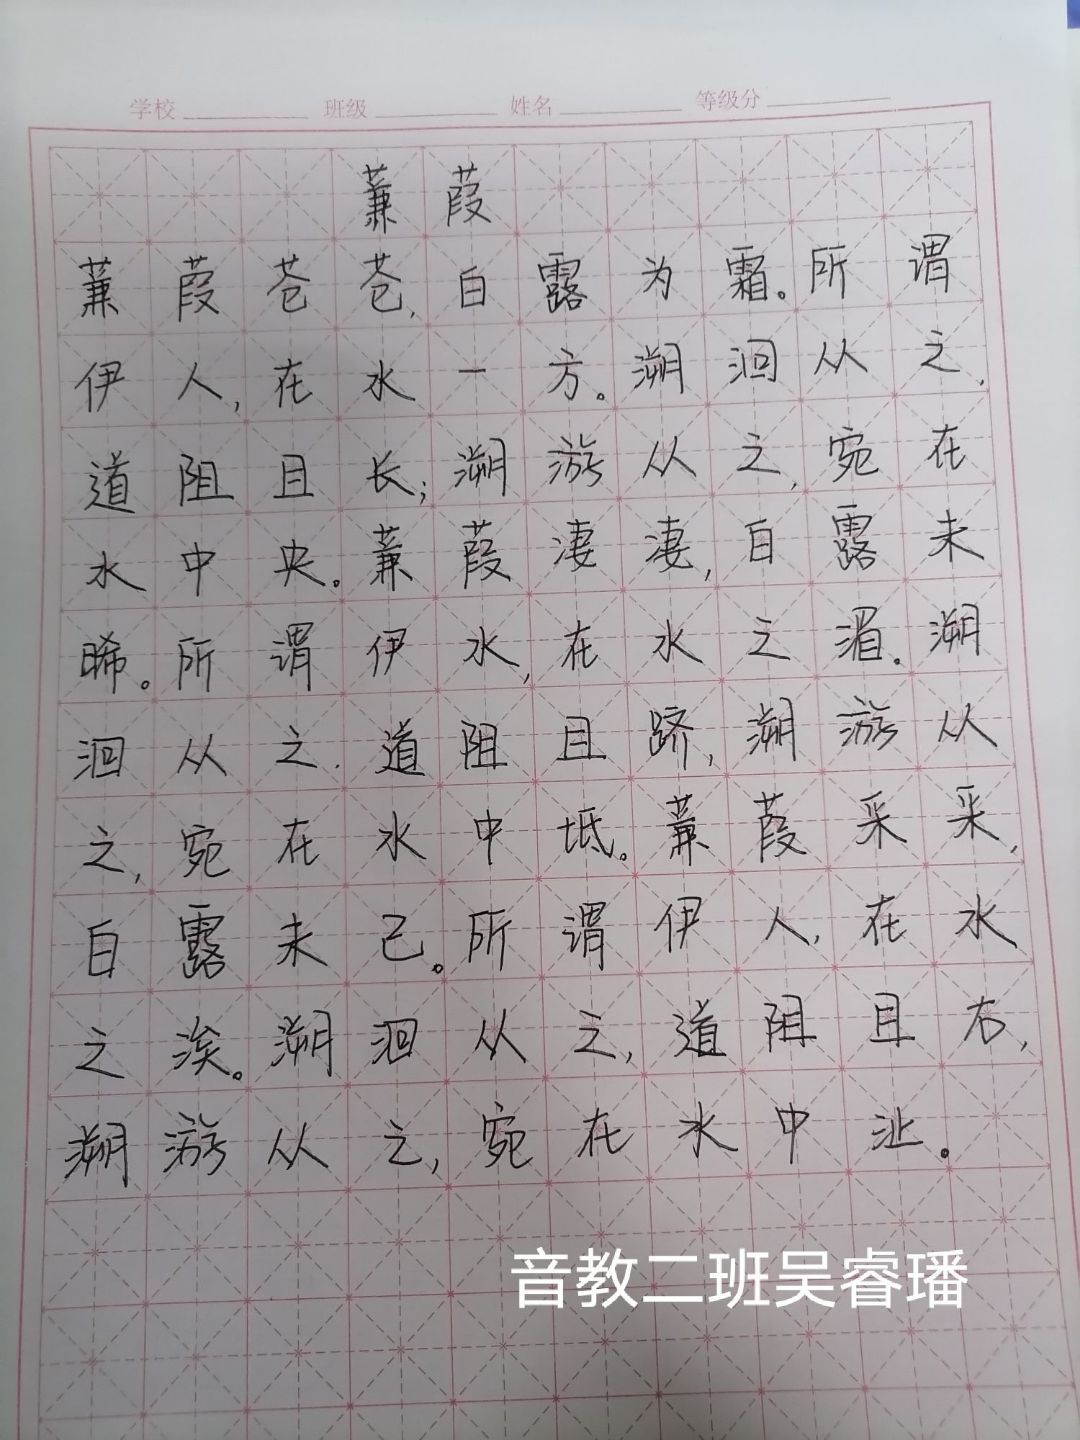 学校 班级 姓名 等级分
蒹葭
蒹葭苍苍,白露为霜。所谓
伊人,在水一方。溯洄从之,
道阻且长;溯游从之,宛在
水中央。蒹葭凄凄,白露未
晞。所谓伊水,在水之湄。溯
洄从之.道阻且跻,溯游从
之,宛在水中坻。蒹葭采采,
白露未已。所谓伊人,在水
之涘。溯洄从之,道阻且右,
溯游从之,宛在水中沚。
音教二班吴睿璠